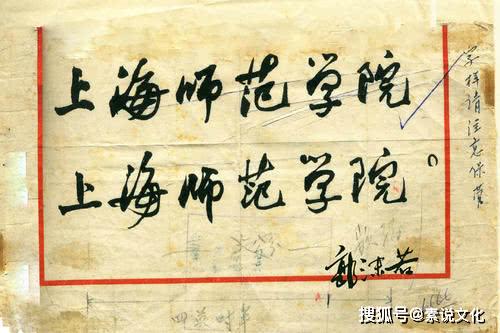 上海师范学院
上海师范学院。
郭沫若
字样请注意保管
搜狐号@素说文化